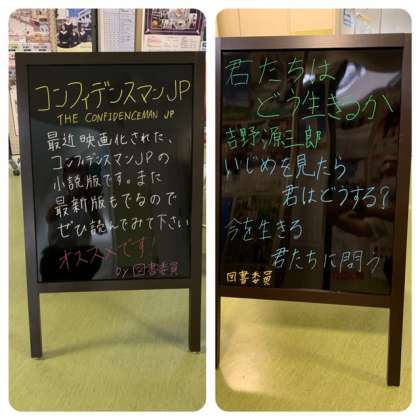 コンフィデンスマンJP
THE CONFIDENCEMAN JP
最近映画化された、
コンフィデンスマンJPの
小説版です。また
最新版もでるので
ぜひ読んでみて下さい
オススメです!
by 図書委員
君たちは
どう生きるか
吉野源三郎
いじめを見たら
君はどうする?
今を生きる
君たちに問う
図書委員